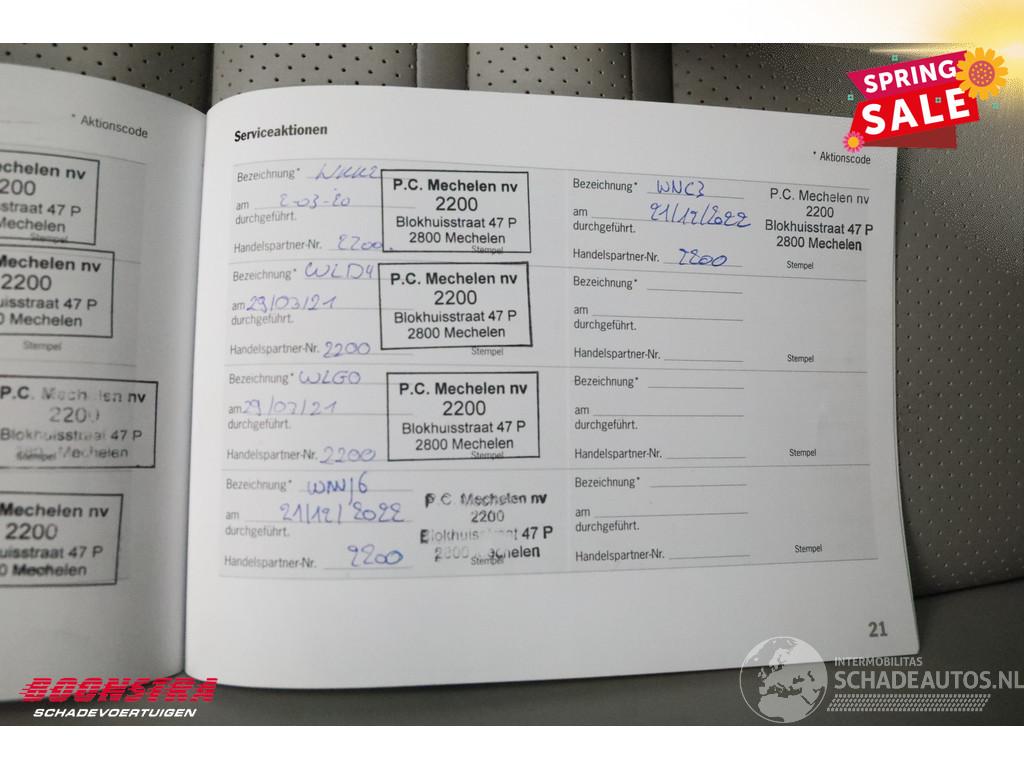 SPRING
SALE
* Aktionscode
2200
Mechelen nv
2200
Mechelen
P.C. Mechelen nv
2200
Blokhuisstraat 47 P
Mechelen
Stempel
Mechelen nv
2200
Mechelen
Serviceaktionen
* Aktionscode
Bezeichnung*
am 2-03-20
durchgeführt.
Handelspartner-Nr. 2200
P.C. Mechelen nv
2200
Blokhuisstraat 47 P
2800 Mechelen
Stempel
Bezeichnung* WLD4
am 29/03/21
durchgeführt.
Handelspartner-Nr. 2200
P.C. Mechelen nv
2200
Blokhuisstraat 47 P
2800 Mechelen
Stempel
Bezeichnung* WLG0
am 29/07/21
durchgeführt.
Handelspartner-Nr. 2200
P.C. Mechelen nv
2200
Blokhuisstraat 47 P
2800 Mechelen
Stempel
Bezeichnung*
am 21/12/2022
durchgeführt.
Handelspartner-Nr. 2200
P.C. Mechelen nv
2200
47 P
Stempel
Bezeichnung* WNC3
am 21/12/2022
durchgeführt.
Handelspartner-Nr. 2200
P.C. Mechelen nv
2200
Blokhuisstraat 47 P
2800 Mechelen
Stempel
Bezeichnung*
am
durchgeführt.
Handelspartner-Nr.
Stempel
Bezeichnung*
am
durchgeführt.
Handelspartner-Nr.
Stempel
Bezeichnung*
am
durchgeführt.
Handelspartner-Nr.
Stempel
21
BOONSTRA
SCHADEVOERTUIGEN
INTERMOBILITAS
SCHADEAUTOS.NL